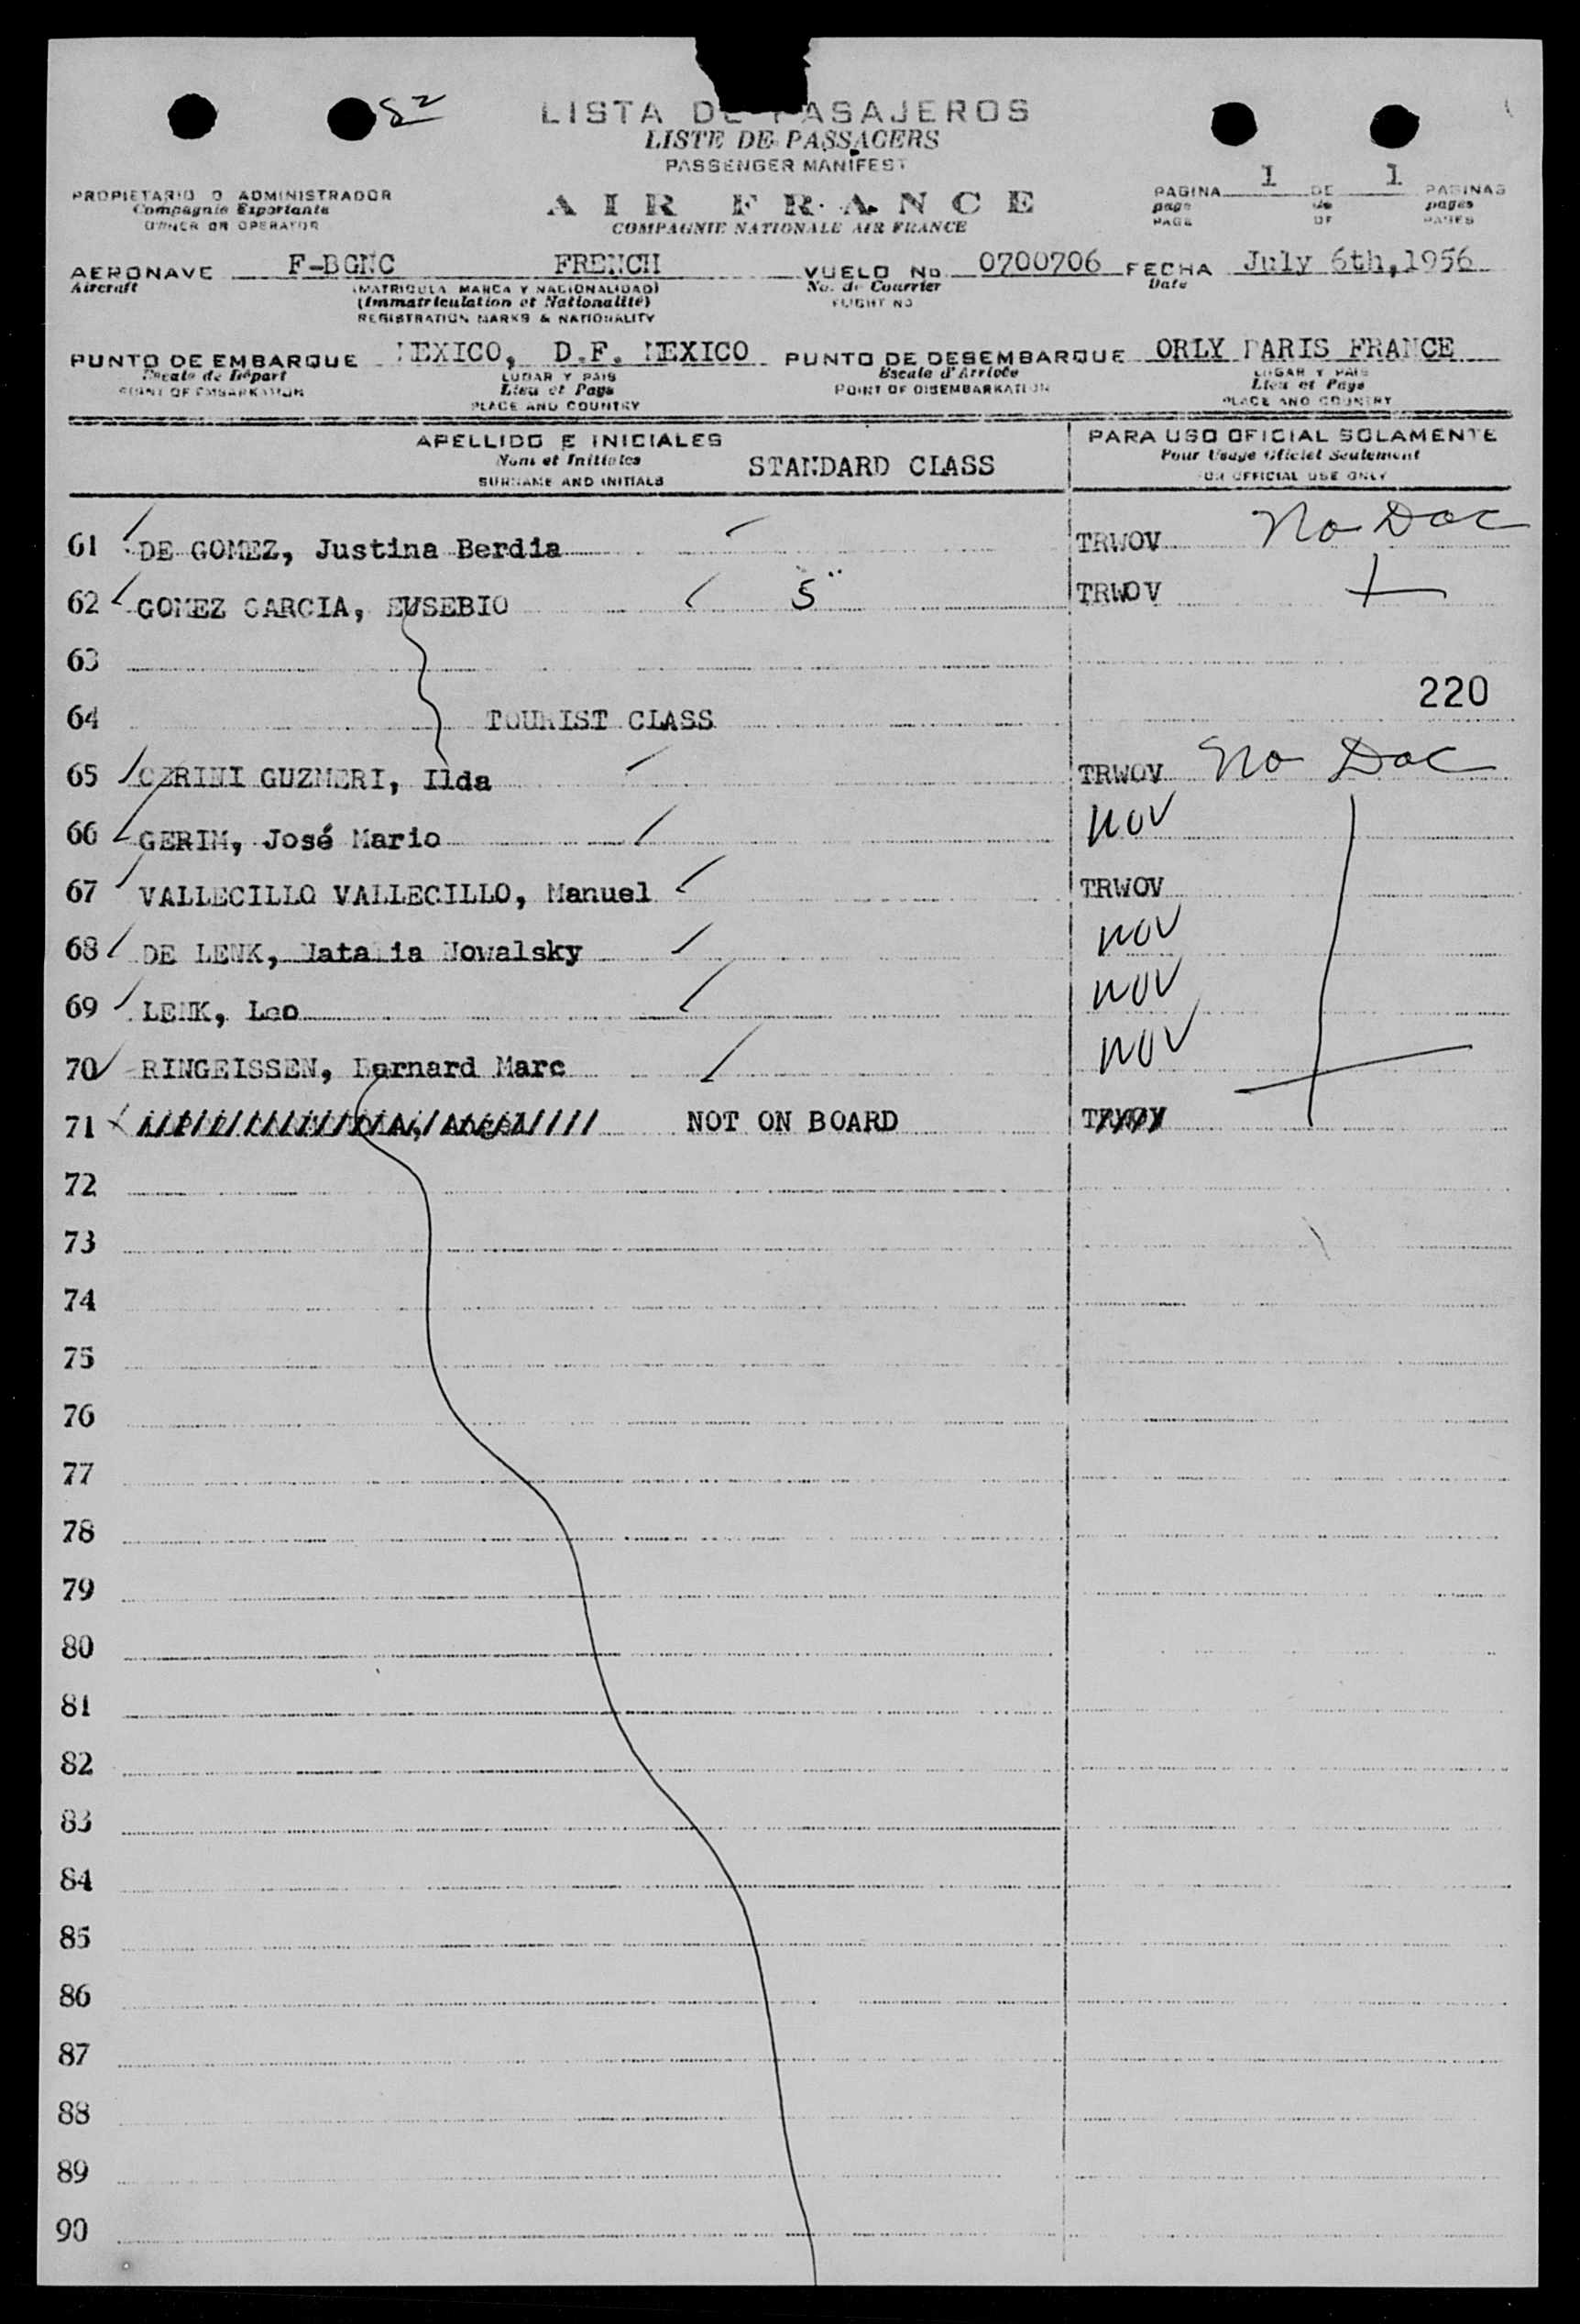 82
LISTA DE PASAJEROS
LISTE DE PASSAGERS
PASSENGER MANIFEST
PROPIETARIO O ADMINISTRADOR
Compagnie Exportante
OWNER OR OPERATOR
AIR FRANCE
COMPAGNIE NATIONALE AIR FRANCE
PAGINA 1 DE 1 PAGINAS
page de pages
PAGE OF PAGES
AERONAVE F-BGNC FRENCH VUELO No 0700706 FECHA July 6th,1956
Aircraft (MATRICULA MARCA Y NACIONALIDAD) No. de Courrier Date
(Immatriculation et Nationalité) FLIGHT NO
REGISTRATION MARKS & NATIONALITY
PUNTO DE EMBARQUE MEXICO, D.F. MEXICO PUNTO DE DESEMBARQUE ORLY PARIS FRANCE
Escale de Départ LUGAR Y PAIS Escale d'Arrivée LUGAR Y PAIS
POINT OF EMBARKATION Lieu et Pays POINT OF DISEMBARKATION Lieu et Pays
PLACE AND COUNTRY PLACE AND COUNTRY
APELLIDO E INICIALES PARA USO OFICIAL SOLAMENTE
Nom et Initiales STANDARD CLASS Pour Usage Officiel Seulement
SURNAME AND INITIALS FOR OFFICIAL USE ONLY
61 DE GOMEZ, Justina Berdia TRWOV No Doc
62 GOMEZ GARCIA, EUSEBIO 5 TRWOV
63
220
64 TOURIST CLASS
65 CERINI GUZMERI, Ilda TRWOV No Doc
66 GERIM, José Mario WOV
67 VALLECILLO VALLECILLO, Manuel TRWOV
68 DE LENK, Natalia Nowalsky WOV
69 LENK, Leo WOV
70 RINGEISSEN, Bernard Marc WOV
71 NOT ON BOARD
72
73
74
75
76
77
78
79
80
81
82
83
84
85
86
87
88
89
90